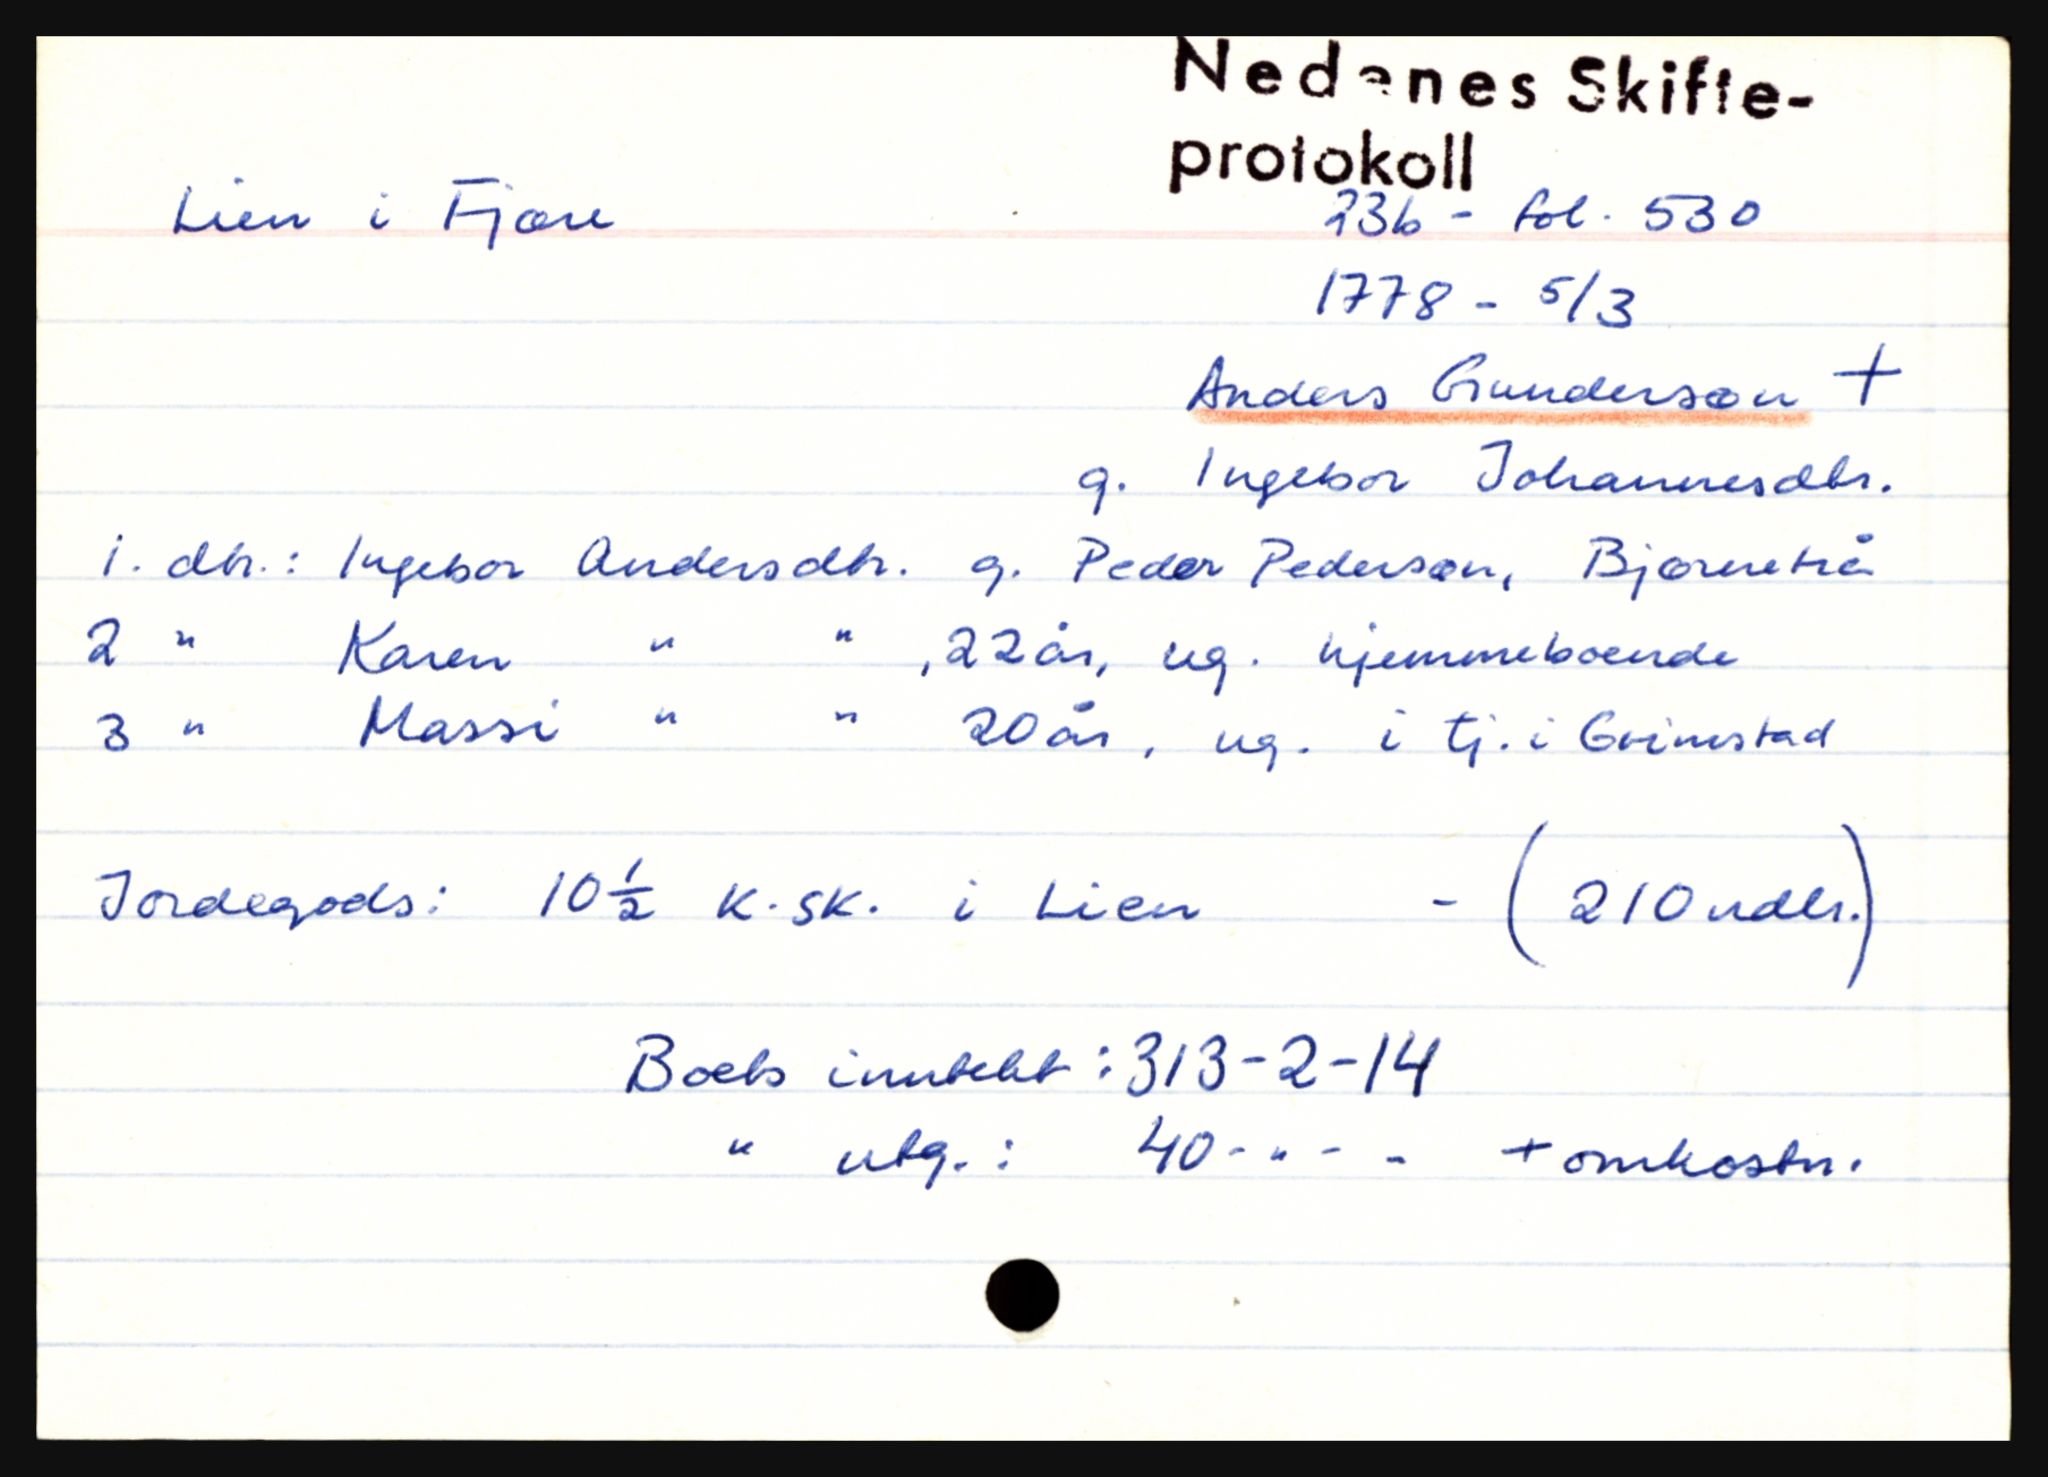 Nedenes Skifte-
protokoll
Lien i Fjære
23b - fol. 530
1778 - 5/3
Anders Gundersøn +
g. Ingebor Johannesdtr.
1. dtr.: Ingebor Andersdtr. g. Peder Pedersøn, Bjørnetrå
2 " Karen " " , 22 år, ug. hjemmeboende
3 " Massi " " 20 år, ug. i tj. i Grimstad
Jordegods: 10 1/2 k.sk. i Lien - (210 rdlr.)
Boets inntekt: 313-2-14
" utg.: 40 - " - - + omkostn.